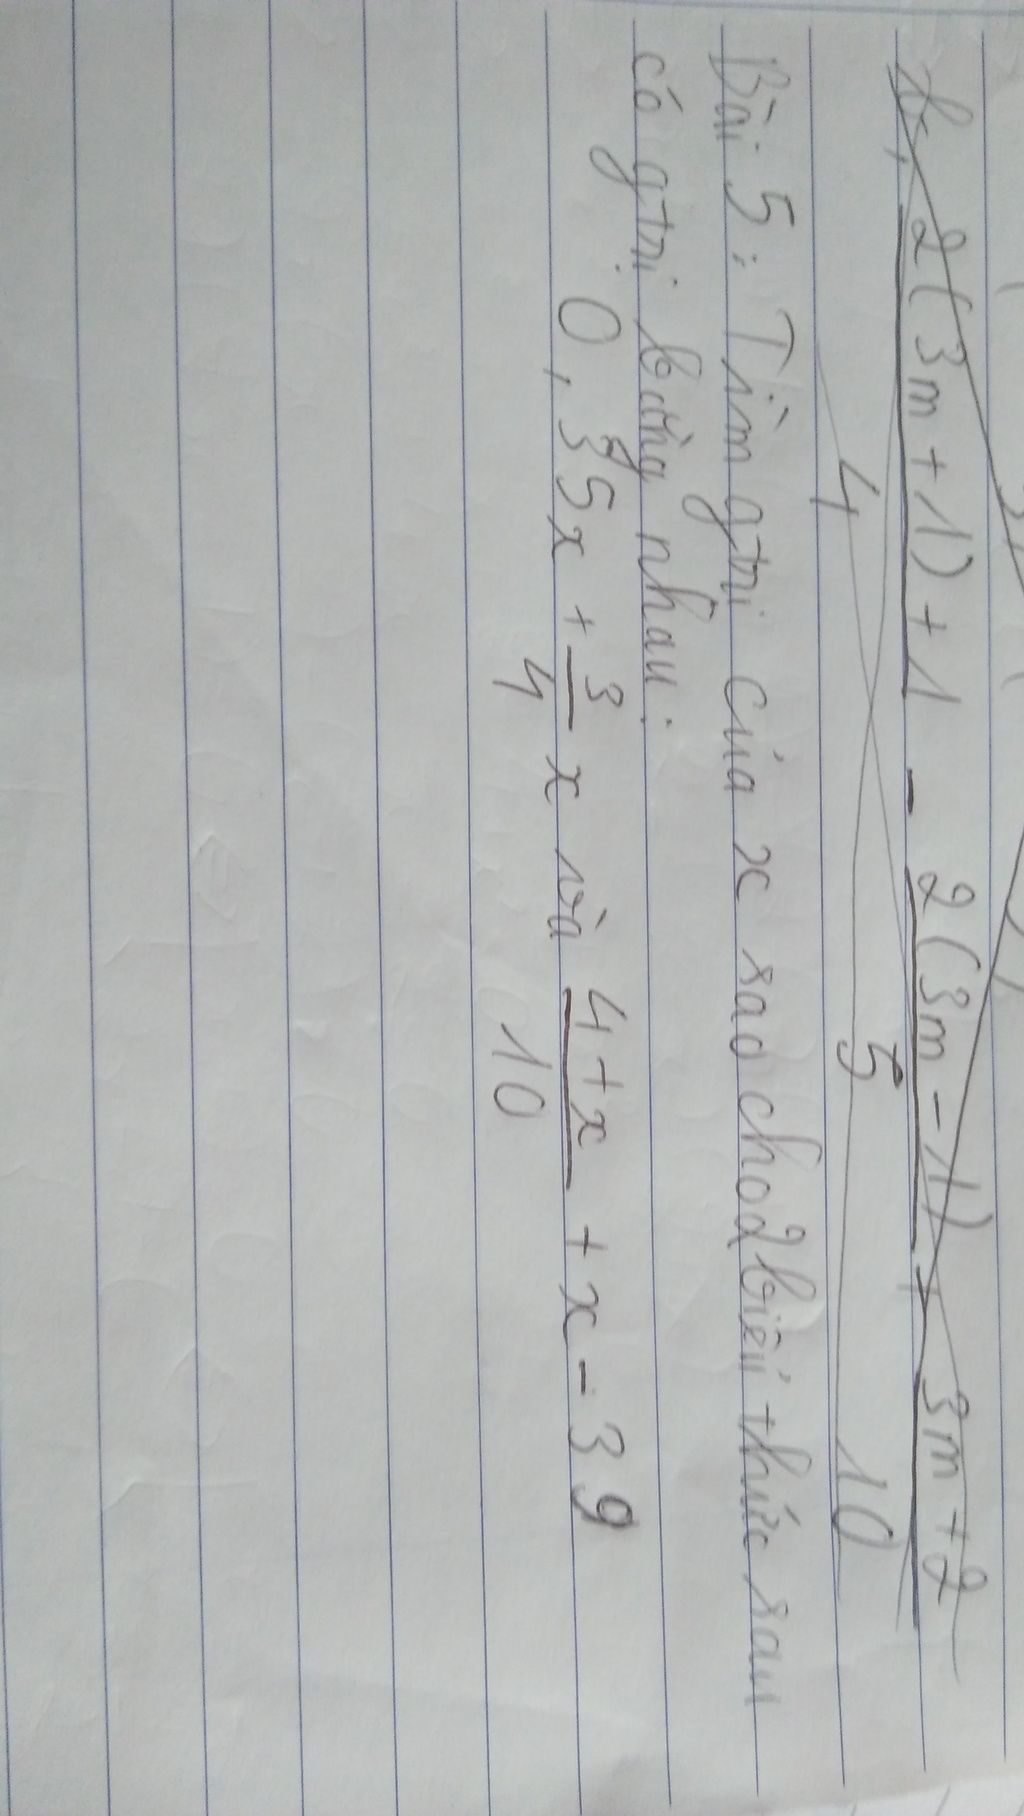 b, 2(3m+1)+1 - 2(3m-1) + 3m+2
4 5 10
Bài 5: Tìm gtrị của x sao cho 2 biểu thức sau
có gtrị bằng nhau:
0,35x + 3/4 x và 4+x/10 + x - 39